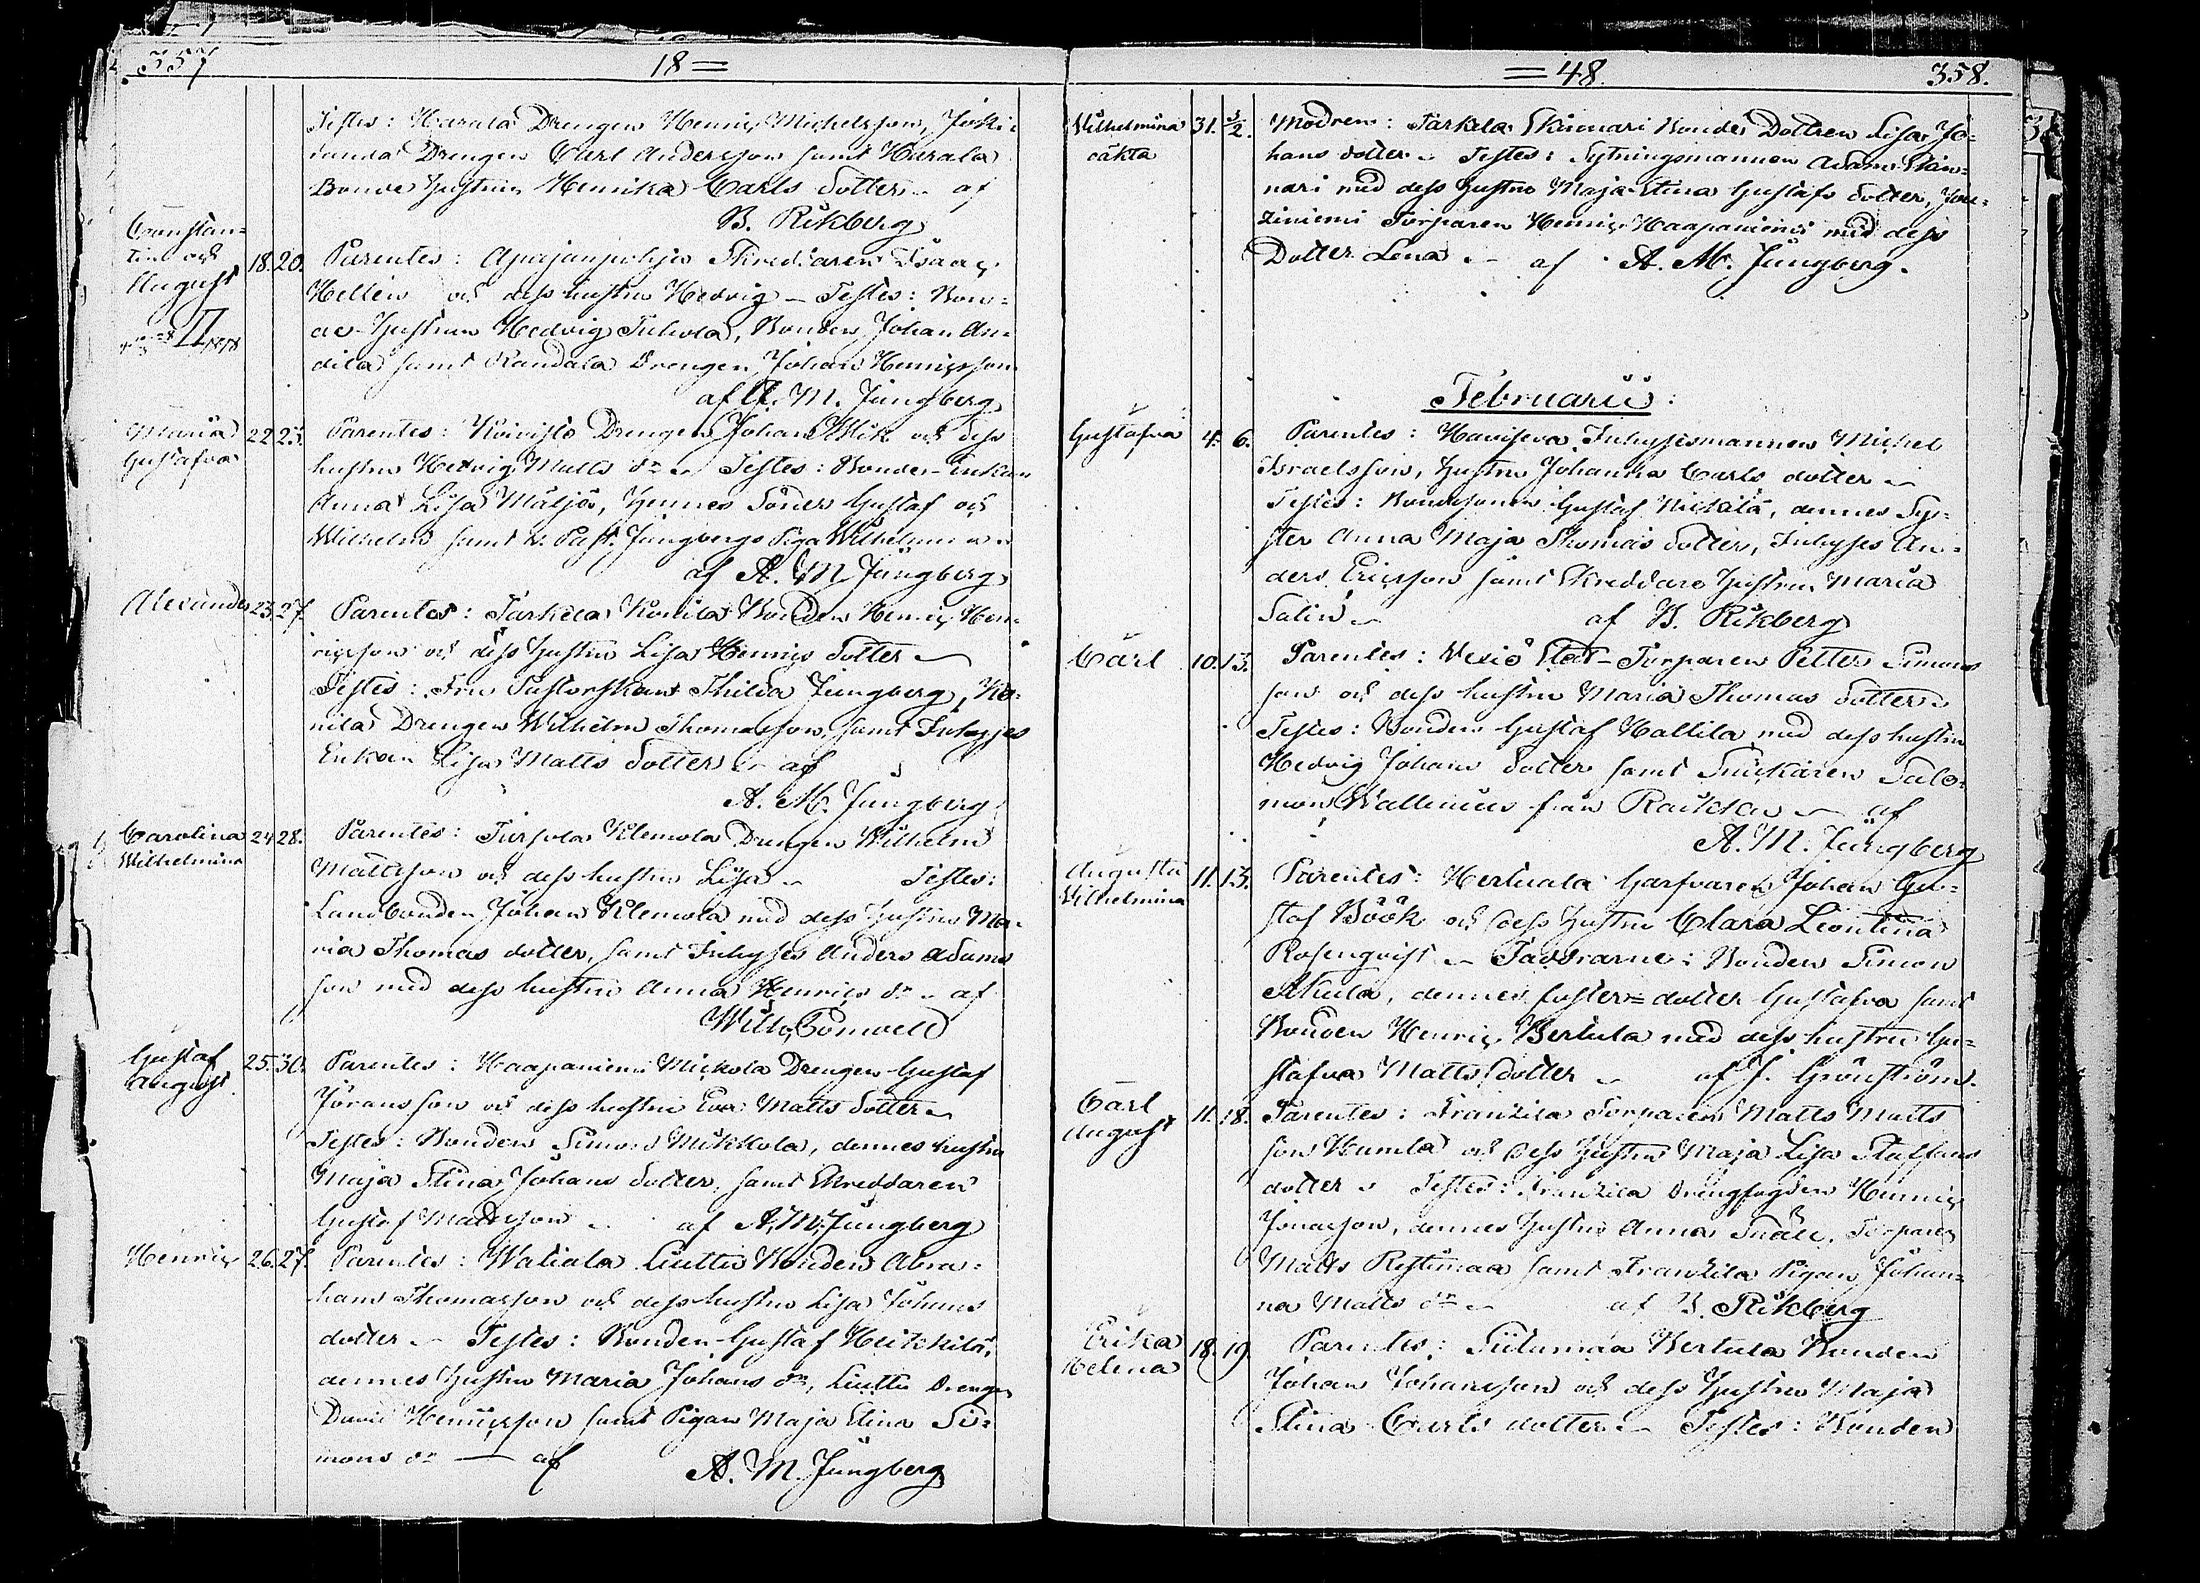 357
18=
Testes: Harala Drengen Henric Michelsson, Joki-
Drengen Carl Andersson samt Harala
Bonde Hustrun Henrika Carls dotter af
B. Rikberg
Constan-
tin och
August
18. 20. Parentes: Apajanpohja Skreddaren Isaac
Hellen och dess hustru Hedvig – Testes: Bon-
de Hustrun Hedvig Juhola, Bonden Johan An-
dila samt Randala Drengen Johan Henricsson
af A. M. Jungberg
Maria
Gustafva
22 25. Parentes: Koivisto Drengen Johan och dess
hustru Hedvig Matts dr Testes: Bonde-Enkan
Anna Lisa Mäljös, hennes Söner Gustaf och
Wilhelm samt V. Past. Jungbergs Piga Wilhelmina
af A. M. Jungberg
Alexander 23. 27. Parentes: Tarkela Konila Bonden Henric Hen-
ricsson och dess Hustru Lisa Henrics dotter
Testes: Fru Pastorskan Thilda Jungberg, Ko-
nila Drengen Wilhelm Thomasson, samt Inhyses
Enkan Lisa Matts dotter af
A. M. Jungberg
Carolina
Wilhelmina
24 28. Parentes: Tursola Klemola Drengen Wilhelm
Mattsson och dess hustru Lisa Testes:
Landbonden Johan Klemola med dess Hustru Ma-
ria Thomas dotter, samt Inhyses Anders Adams
son med dess hustru Anna Henrics dr af
Wilh. Törnveld
Gustaf
August
25. 30. Parentes: Haapaniemi Mickola Drengen Gustaf
Göransson och dess hustru Eva Matts dotter
Testes: Bonden Simon Mikkola, dennes hustru
Maja Stina Johans dotter, samt Skreddaren
Gustaf Mattsson af A. M. Jungberg
Henric 26. 27. Parentes: Waliala Liuttu Bonden Abra-
ham Thomasson och dess hustru Lisa Johans
dotter Testes: Bonden Gustaf Heikkilä,
dennes Hustru Maria Johans dr, Liuttu Drengen
David Henricsson samt Pigan Maja Stina Si-
mons dr — af A. M. Jungberg
=48.
358.
Wilhelmina
oäkta
31. 5/2. Modren: Tarkela Skinnari Bonde Dottren Lisa Jo-
hans dotter Testes: Sytningsmannen Adam Skin-
nari med dess Hustru Maja Stina Gustafs dotter, Jou-
Torparen Henric Haapaniemi med dess
Dotter Lena af A. M. Jungberg.
Februarii:
Gustafva 4. 6. Parentes: Inhysesmannen Michel
Israelsson, Hustru Johanna Carls dotter
Testes: Bondesonen Gustaf Mickilä, dennes Sys-
ter Anna Maja Thomas dotter, Inhyses An-
ders Ericsson samt Skreddare Hustrun Maria
Salin af B. Rikberg
Carl 10. 13. Parentes: Vesiö Torparen Petter Simons
son och dess hustru Maria Thomas dotter
Testes: Bonden Gustaf Hattila med dess hustru
Hedvig Johans dotter samt Snickaren Salo-
mon Wallenius från af
A. M. Jungberg
Augusta
Wilhelmina
11. 13. Parentes: Hertuala Garfvaren Johan Gu-
staf Böök och dess Hustru Clara Leontina
Rosenqvist Faddrarne: Bonden Simon
Akula, dennes foster-dotter Gustafva samt
Bonden Henric Bertula med dess hustru Gu-
stafva Matts dotter af J. Grönström.
Carl
August
11. 18. Parentes: Frantzila Torparen Matts Matts
son Humla och dess Hustru Maja Lisa Staffans
dotter Testes: Frantzila Drengfogden Henric
Jonasson, dennes Hustru Anna Snäll, Torparen
Matts Ristimaa samt Frantzila Pigan Johan-
na Matts dr af B. Rikberg
Erika
Helena
18. 19. Parentes: Tiilimaa Bertula Bonden
Johan Johansson och dess Hustru Maja
Stina Carls dotter Testes: Bonden